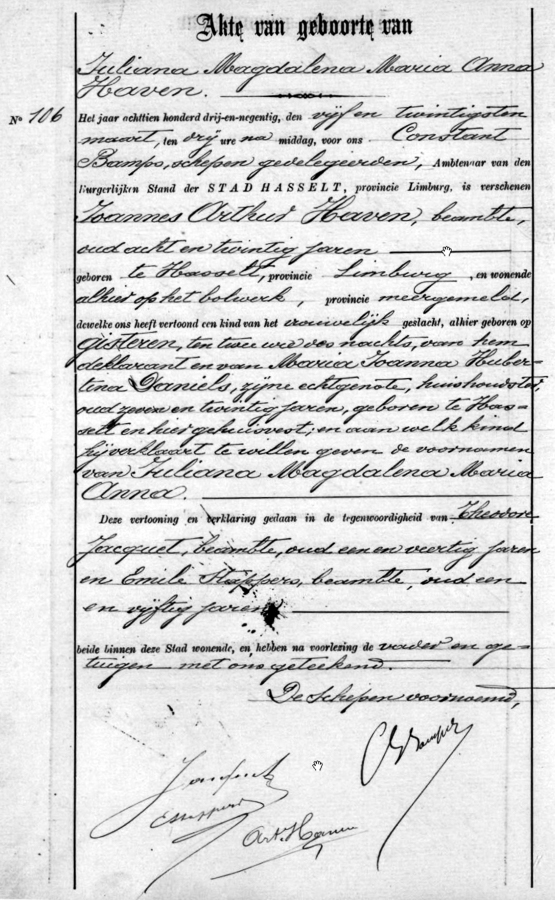 Akte van geboorte van
Juliana Magdalena Maria Anna
Haven.
No 106
Het jaar achttien honderd drij-en-negentig, den vijf en twintigsten
maart, ten drij ure na middag, voor ons Constant
Bamps, schepen gedelegeerden, Ambtenaar van den
Burgerlijken Stand der STAD HASSELT, provincie Limburg, is verschenen
Joannes Arthur Haven, beambte,
oud acht en twintig jaren
geboren te Hasselt, provincie Limburg, en wonende
alhier op het bolwerk, provincie meergemeld,
dewelke ons heeft vertoond een kind van het vrouwelijk geslacht, alhier geboren op
gisteren, ten twee ure des nachts, van hem
deklarant en van Maria Joanna Huber-
tina Daniels, zijne echtgenote, huishoudster,
oud zeven en twintig jaren, geboren te Has-
selt en hier gehuisvest; en aan welk kind
hij verklaart te willen geven de voornamen
van Juliana Magdalena Maria
Anna.
Deze vertooning en verklaring gedaan in de tegenwoordigheid van Theodore
Jacquet, beambte, oud een en veertig jaren
en Emile Stappers, beambte, oud een
en vijftig jaren
beide binnen deze Stad wonende, en hebben na voorlezing de vader en ge-
tuigen met ons geteekend.
De schepen voornoemd,
CBamps
Jacquet
EStappers
Art. Haven